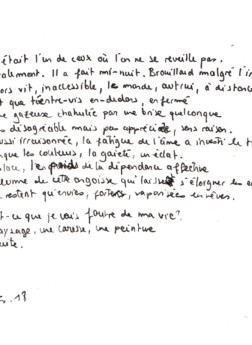 était l'un de ceux où l'on ne se réveille pas.
alement. Il a fait mi-nuit. Brouillard malgré l'i
ors vit, inaccessible, le monde, autrui, à distanc
t que t'entre-vis en-dedans, enfermé
ne gazeuse chahutée par une brise quelconque
s désagréable mais pas apprécié, sans raison.
ussi irraisonnée, la fatigue de l'âme a investi le t
que les couleurs, la gaieté, un éclat.
lace, le poids de la dépendance affective
lume de cette angoisse qui laisse s'égorger les en
restent qu'envies, vaporisées en rêves.
t-ce que je vais foutre de ma vie?
aysage, une caresse, une peinture
uite.
. 18